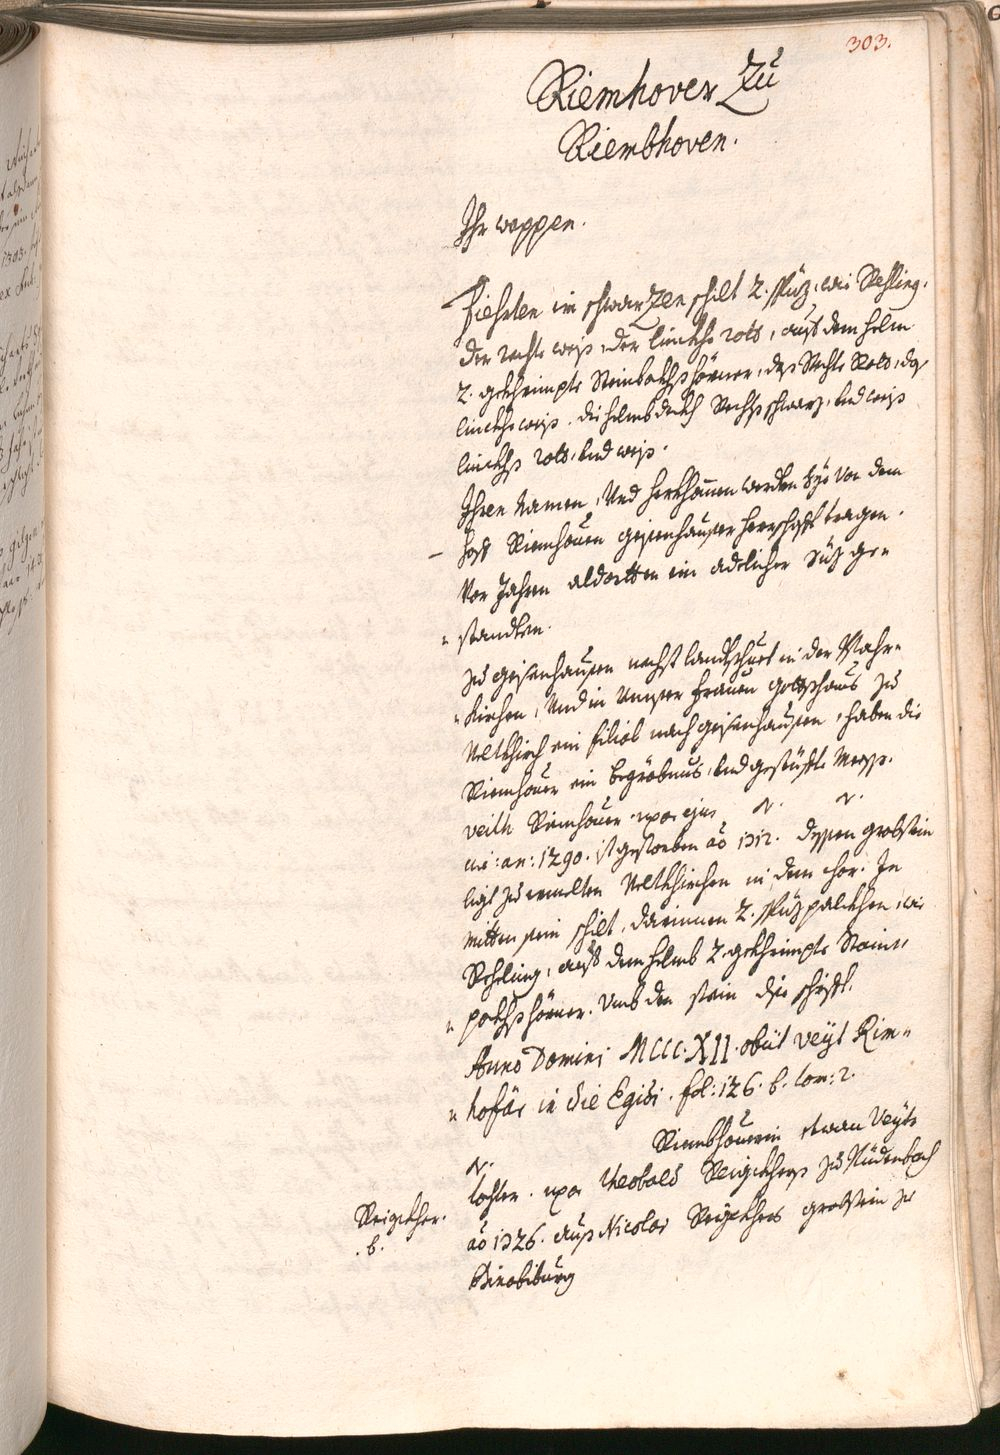 303.
Riemhover Zu
Riembhoven.
Ihr wappen.
Fiehrten im schwarzen schilt 2. Spüz, wie Rehling,
der rechte weiß, der linckhe roth, auf dem helm
2. gekhrimpte Steinbockhshörner, das Rechte Roth, das
linckhe weiß. die helmbdeckh Rechts schwarz, und weiß
linckhs roth, und weiß.
Ihren Namen, Und herkhomen werden sye von dem
hoff Riemhouen geisenhauser herrschafft tragen.
Vor Jahren aldortten ein adelicher Süz ge-
standten.
Zu geisenhausen nechst landtshuet in der Pfahr-
kirchen, Und in Unser Frauen gottshaus zu
Veltkhirch ein filial nach geisenhausen, haben die
Riemhouer ein begräbnus, und gestüffte Mess.
Veith Riemhouer. uxor ejus N. N.
mi: an: 1290. ist gestorben ao 1312. dessen grabstein
ligt zu emelten Veltkhirchen in dem chor. In
mitten sein schilt, darinnen 2. Spüz, wie
Rehling, auf dem helmb 2. gekhrimpte Stain-
pockhshörner. Umb den stein die schrifft.
Anno Domini MCCC.XII. obiit veyt Rim-
hofär in die Egidi. fol: 126. b. tom: 2.
N. Riembhouerin etwan Veyts
tochter. uxor Theobald Reigckhers zu
ao 1326. auß Nicolai Reigckhers grabstein zu
Reigckher.
. b.